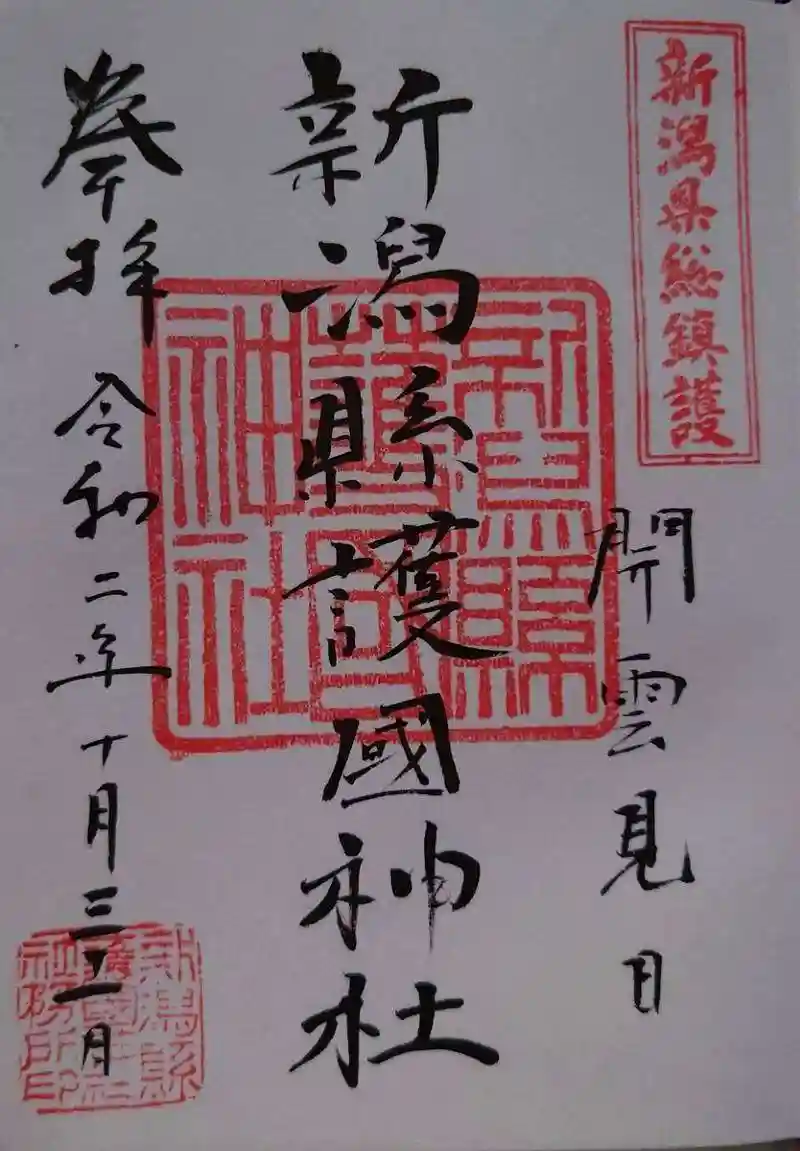 新潟県総鎮護
開雲見日
新潟縣護國神社
新潟縣
護國
神社
奉拝 令和二年十月三十一日
新潟縣
護國神社
社務所印